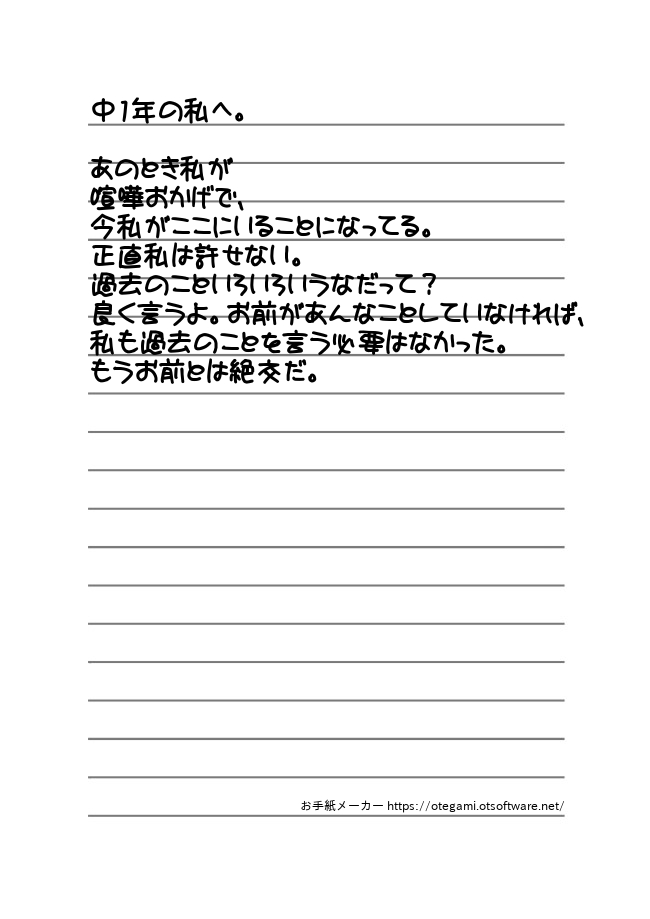 中1年の私へ。
あのとき私が
喧嘩おかげで、
今私がここにいることになってる。
正直私は許せない。
過去のこといろいろいうなだって？
良く言うよ。お前があんなことしていなければ、
私も過去のことを言う必要はなかった。
もうお前とは絶交だ。
お手紙メーカー https://otegami.otsoftware.net/